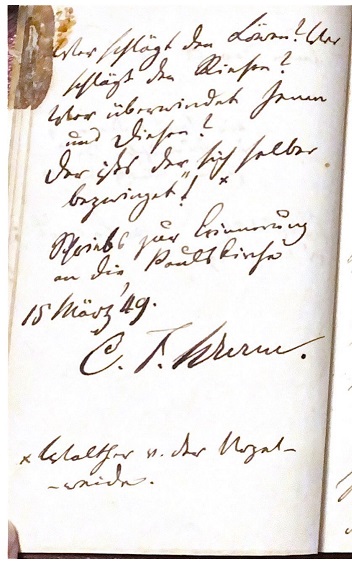 Wer schlägt den Löwen? Wer
schlägt den Riesen?
Wer überwindet Jenen
und Diesen?
Der ists der sich selber
bezwinget"! ×
Schriebs zur Erinnerung
an die Paulskirche
15 März '49.
C. F.
× Walther v. der Vogel-
-weide.